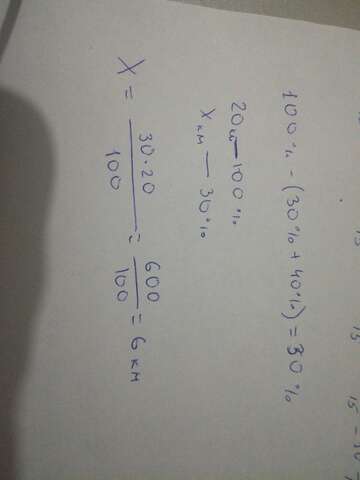 100% - (30% + 40%) = 30%
20км — 100%
x км — 30%
X = 30·20 / 100 = 600 / 100 = 6 км